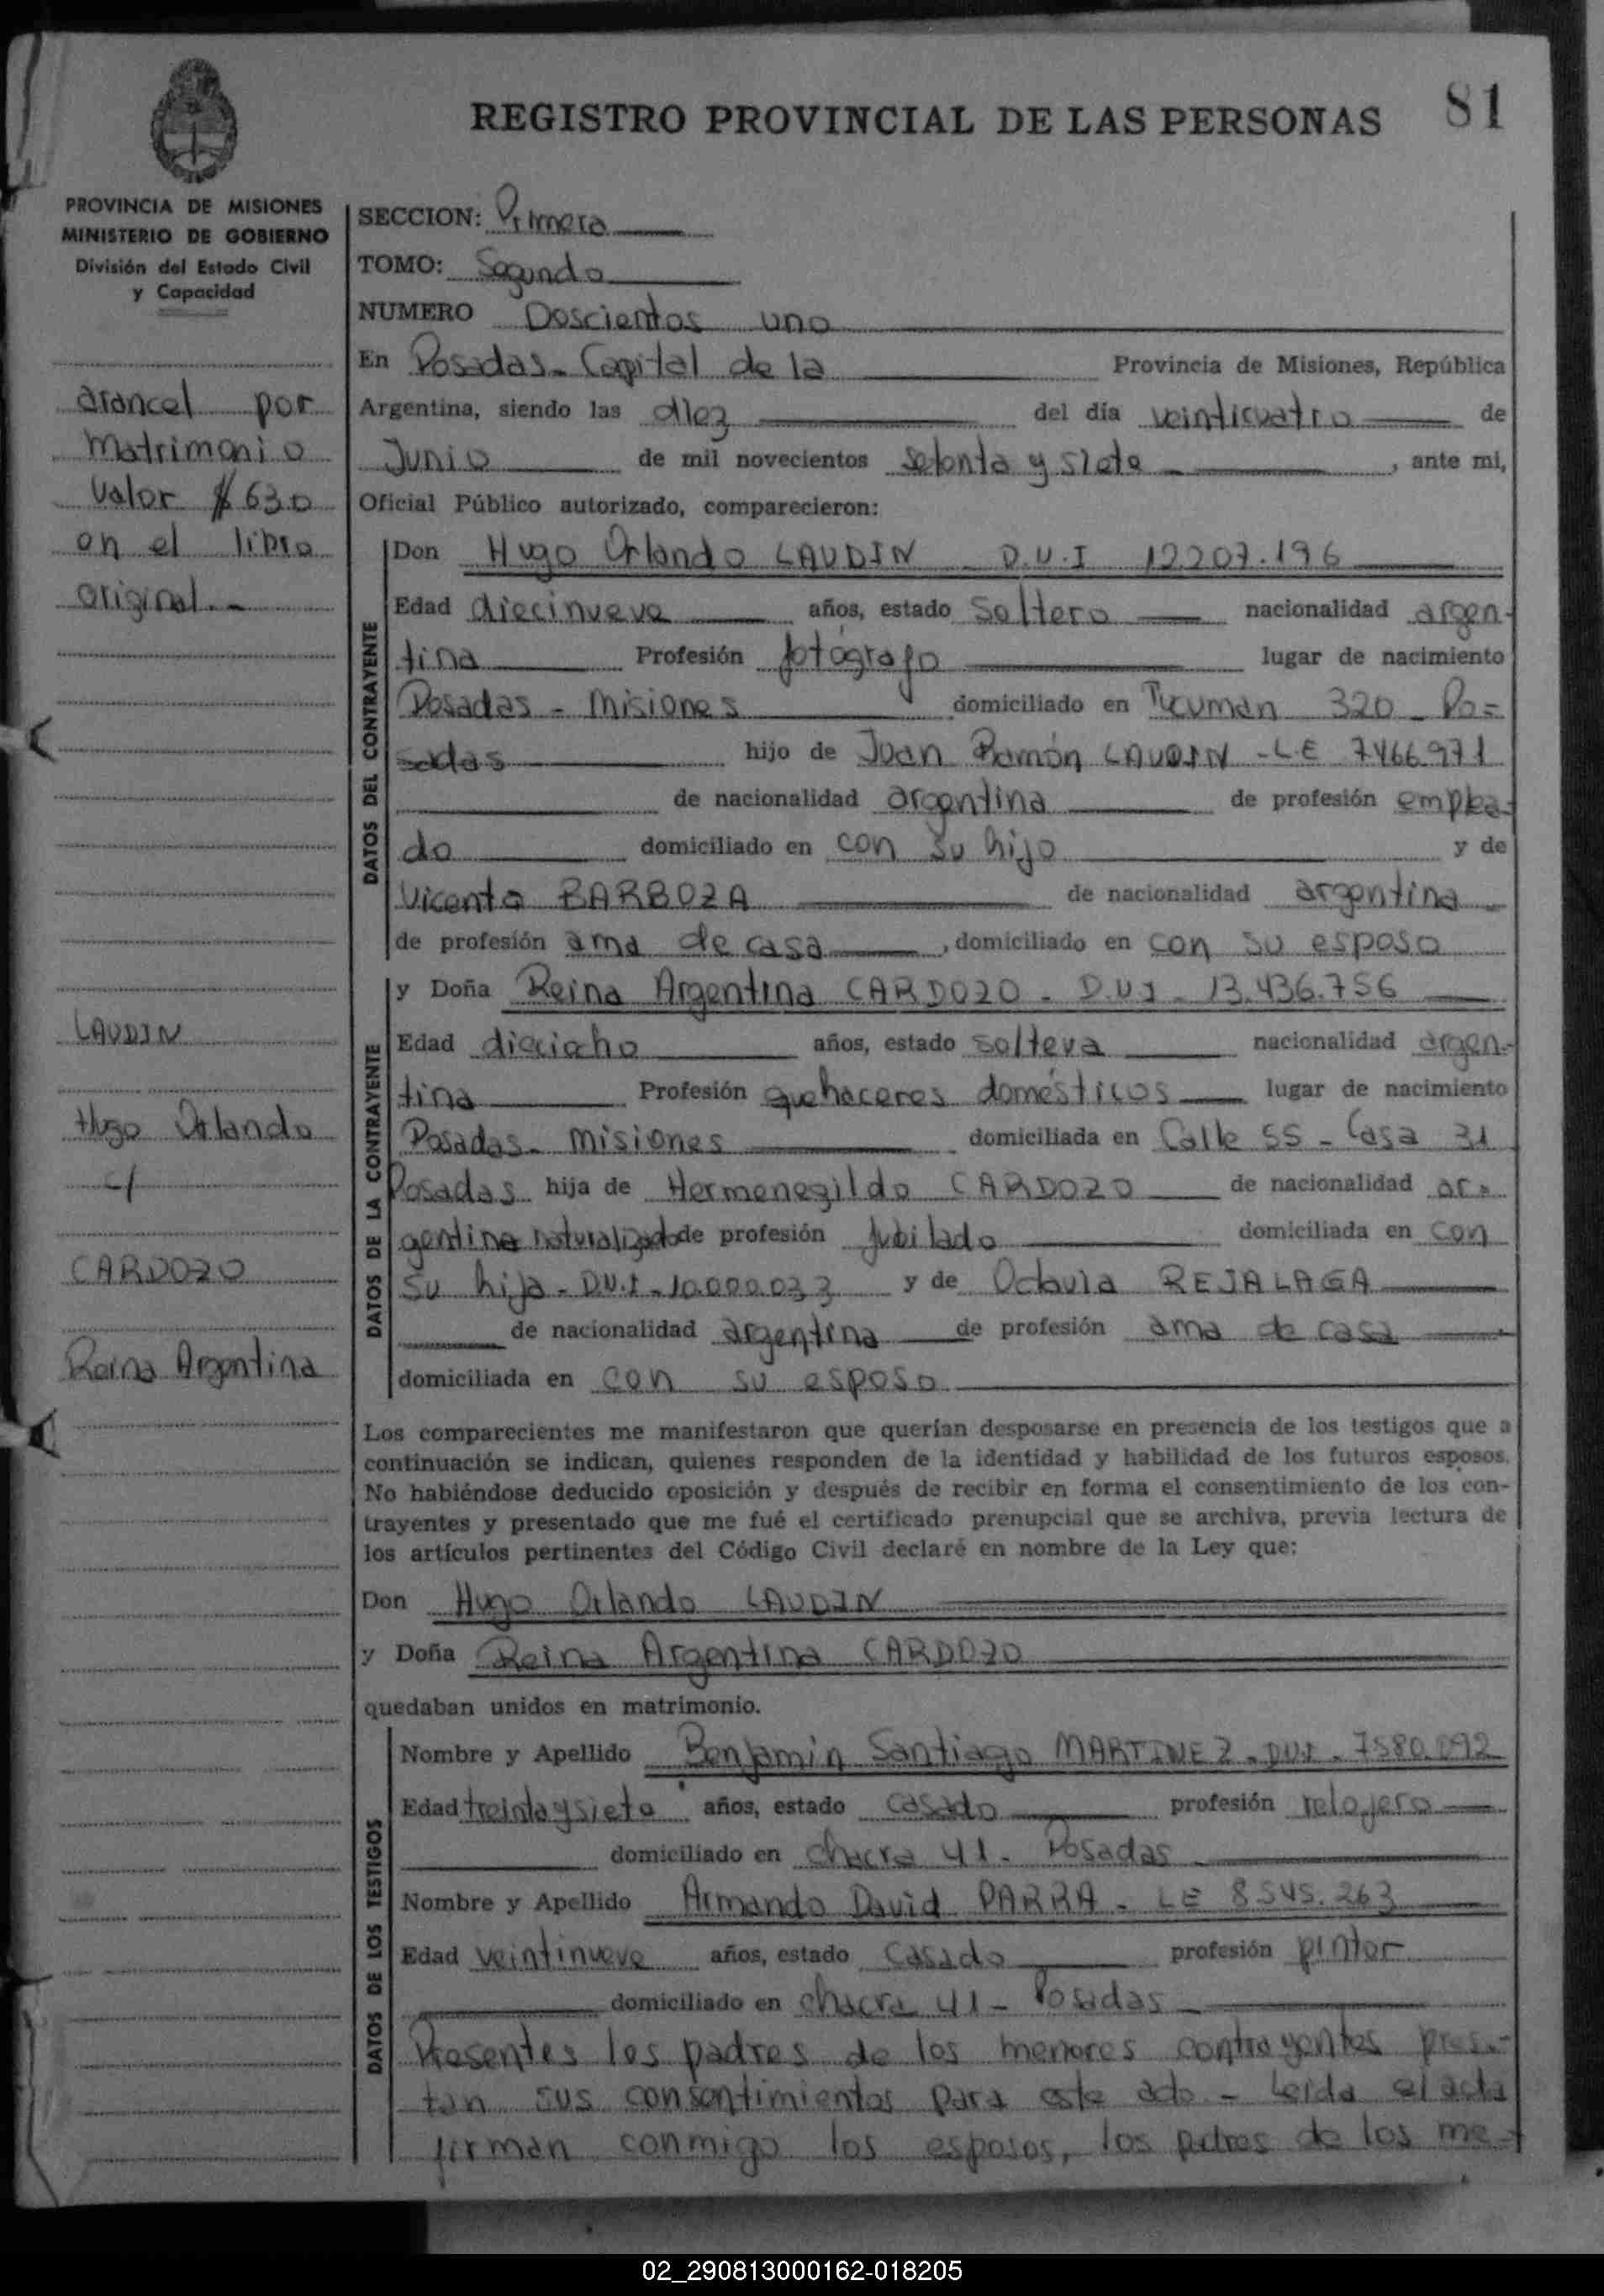 REGISTRO PROVINCIAL DE LAS PERSONAS 81
PROVINCIA DE MISIONES
MINISTERIO DE GOBIERNO
División del Estado Civil
y Capacidad
arancel por
matrimonio
valor $ 630
en el libro
original.-
LAUDIN
Hugo Orlando
c/
CARDOZO
Reina Argentina
SECCION: Primera
TOMO: Segundo
NUMERO Doscientos uno
En Posadas - Capital de la Provincia de Misiones, República
Argentina, siendo las diez del día veinticuatro de
Junio de mil novecientos setenta y siete - , ante mi,
Oficial Público autorizado, comparecieron:
DATOS DEL CONTRAYENTE
Don Hugo Orlando LAUDIN - D.U.I 12207.196
Edad diecinueve años, estado soltero nacionalidad argen-
tina Profesión fotógrafo lugar de nacimiento
Posadas - Misiones domiciliado en Tucuman 320 - Po=
sadas hijo de Juan Ramón LAUDIN - LE 7466971
de nacionalidad argentina de profesión emplea-
do domiciliado en con su hijo y de
Vicenta BARBOZA de nacionalidad argentina
de profesión ama de casa , domiciliado en con su esposo
DATOS DE LA CONTRAYENTE
y Doña Reina Argentina CARDOZO - D.U.I - 13.436.756
Edad dieciocho años, estado soltera nacionalidad argen-
tina Profesión quehaceres domésticos lugar de nacimiento
Posadas - Misiones domiciliada en Calle 55 - Casa 31
Posadas hija de Hermenegildo CARDOZO de nacionalidad ar=
gentina naturalizado de profesión jubilado domiciliada en con
su hija - D.U.I - 10.000.033 y de Octavia REJALAGA
de nacionalidad argentina de profesión ama de casa
domiciliada en con su esposo
Los comparecientes me manifestaron que querían desposarse en presencia de los testigos que a
continuación se indican, quienes responden de la identidad y habilidad de los futuros esposos.
No habiéndose deducido oposición y después de recibir en forma el consentimiento de los con-
trayentes y presentado que me fué el certificado prenupcial que se archiva, previa lectura de
los artículos pertinentes del Código Civil declaré en nombre de la Ley que:
Don Hugo Orlando LAUDIN
y Doña Reina Argentina CARDOZO
quedaban unidos en matrimonio.
DATOS DE LOS TESTIGOS
Nombre y Apellido Benjamin Santiago MARTINEZ - D.U.I - 7580.092
Edad treinta y siete años, estado casado profesión relojero
domiciliado en chacra 41 - Posadas
Nombre y Apellido Armando David PARRA - LE 8545.263
Edad veintinueve años, estado casado profesión pintor
domiciliado en chacra 41 - Posadas
Presentes los padres de los menores contrayentes pres-
tan sus consentimientos para este acto - Leida el acta
firman conmigo los esposos, los padres de los me-
02_290813000162-018205